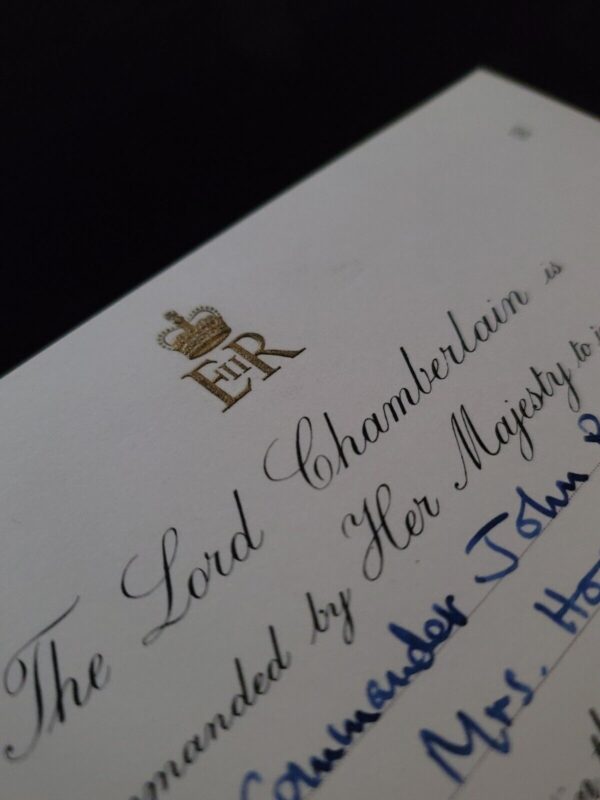 EIIR
The Lord Chamberlain is
commanded by Her Majesty to
Commander John
Mrs.